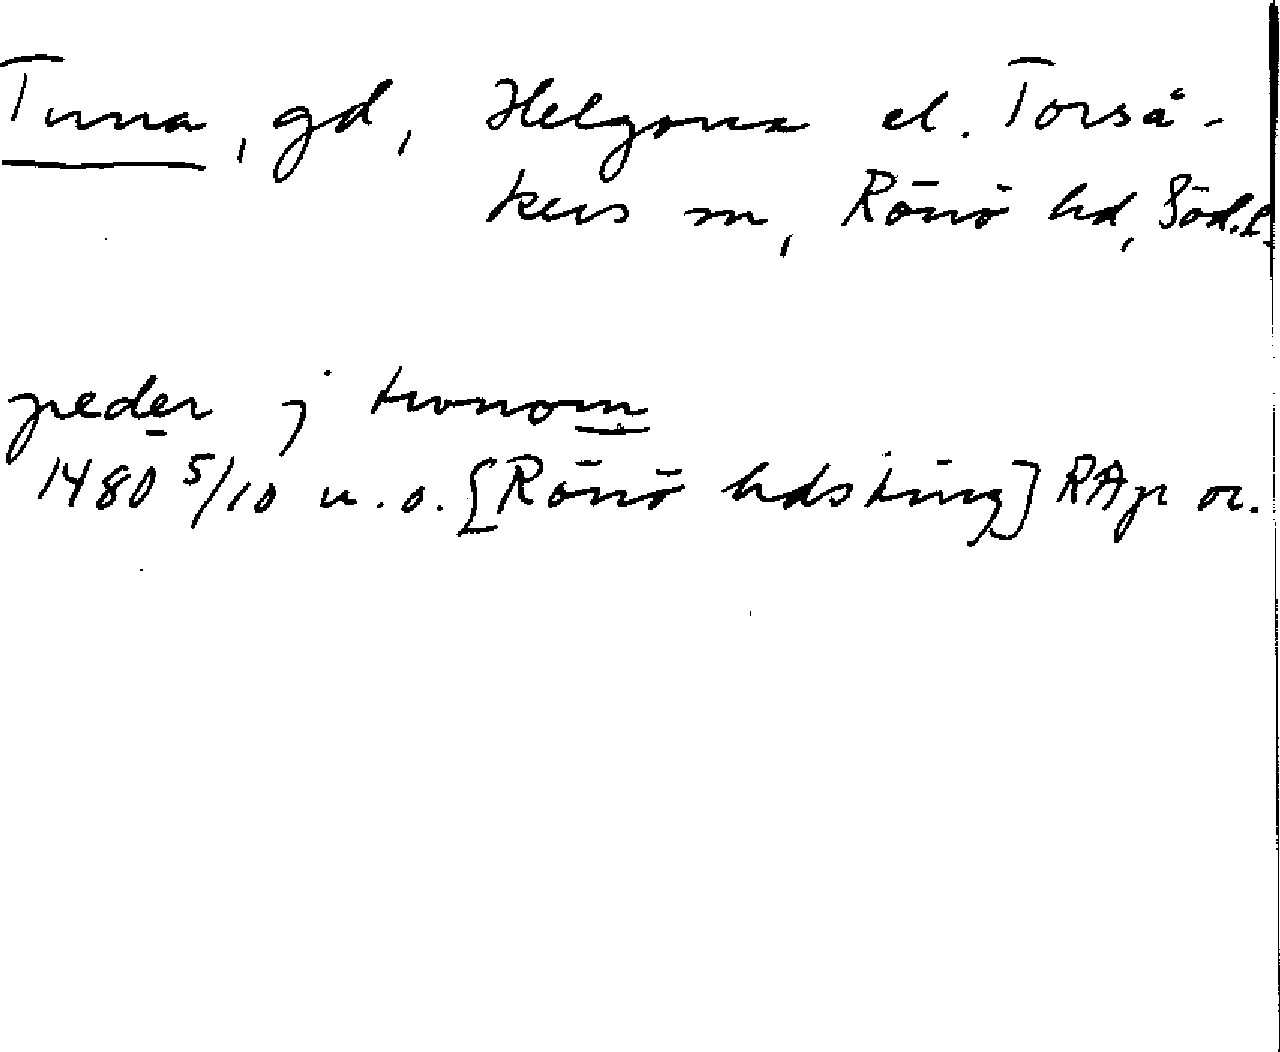 Tuna, gd, Helgona el. Torså-
kers sn, Rönö hd, Söd.l.
peder j twnom
1480 5/10 u.o. [Rönö hdsting] RAp or.